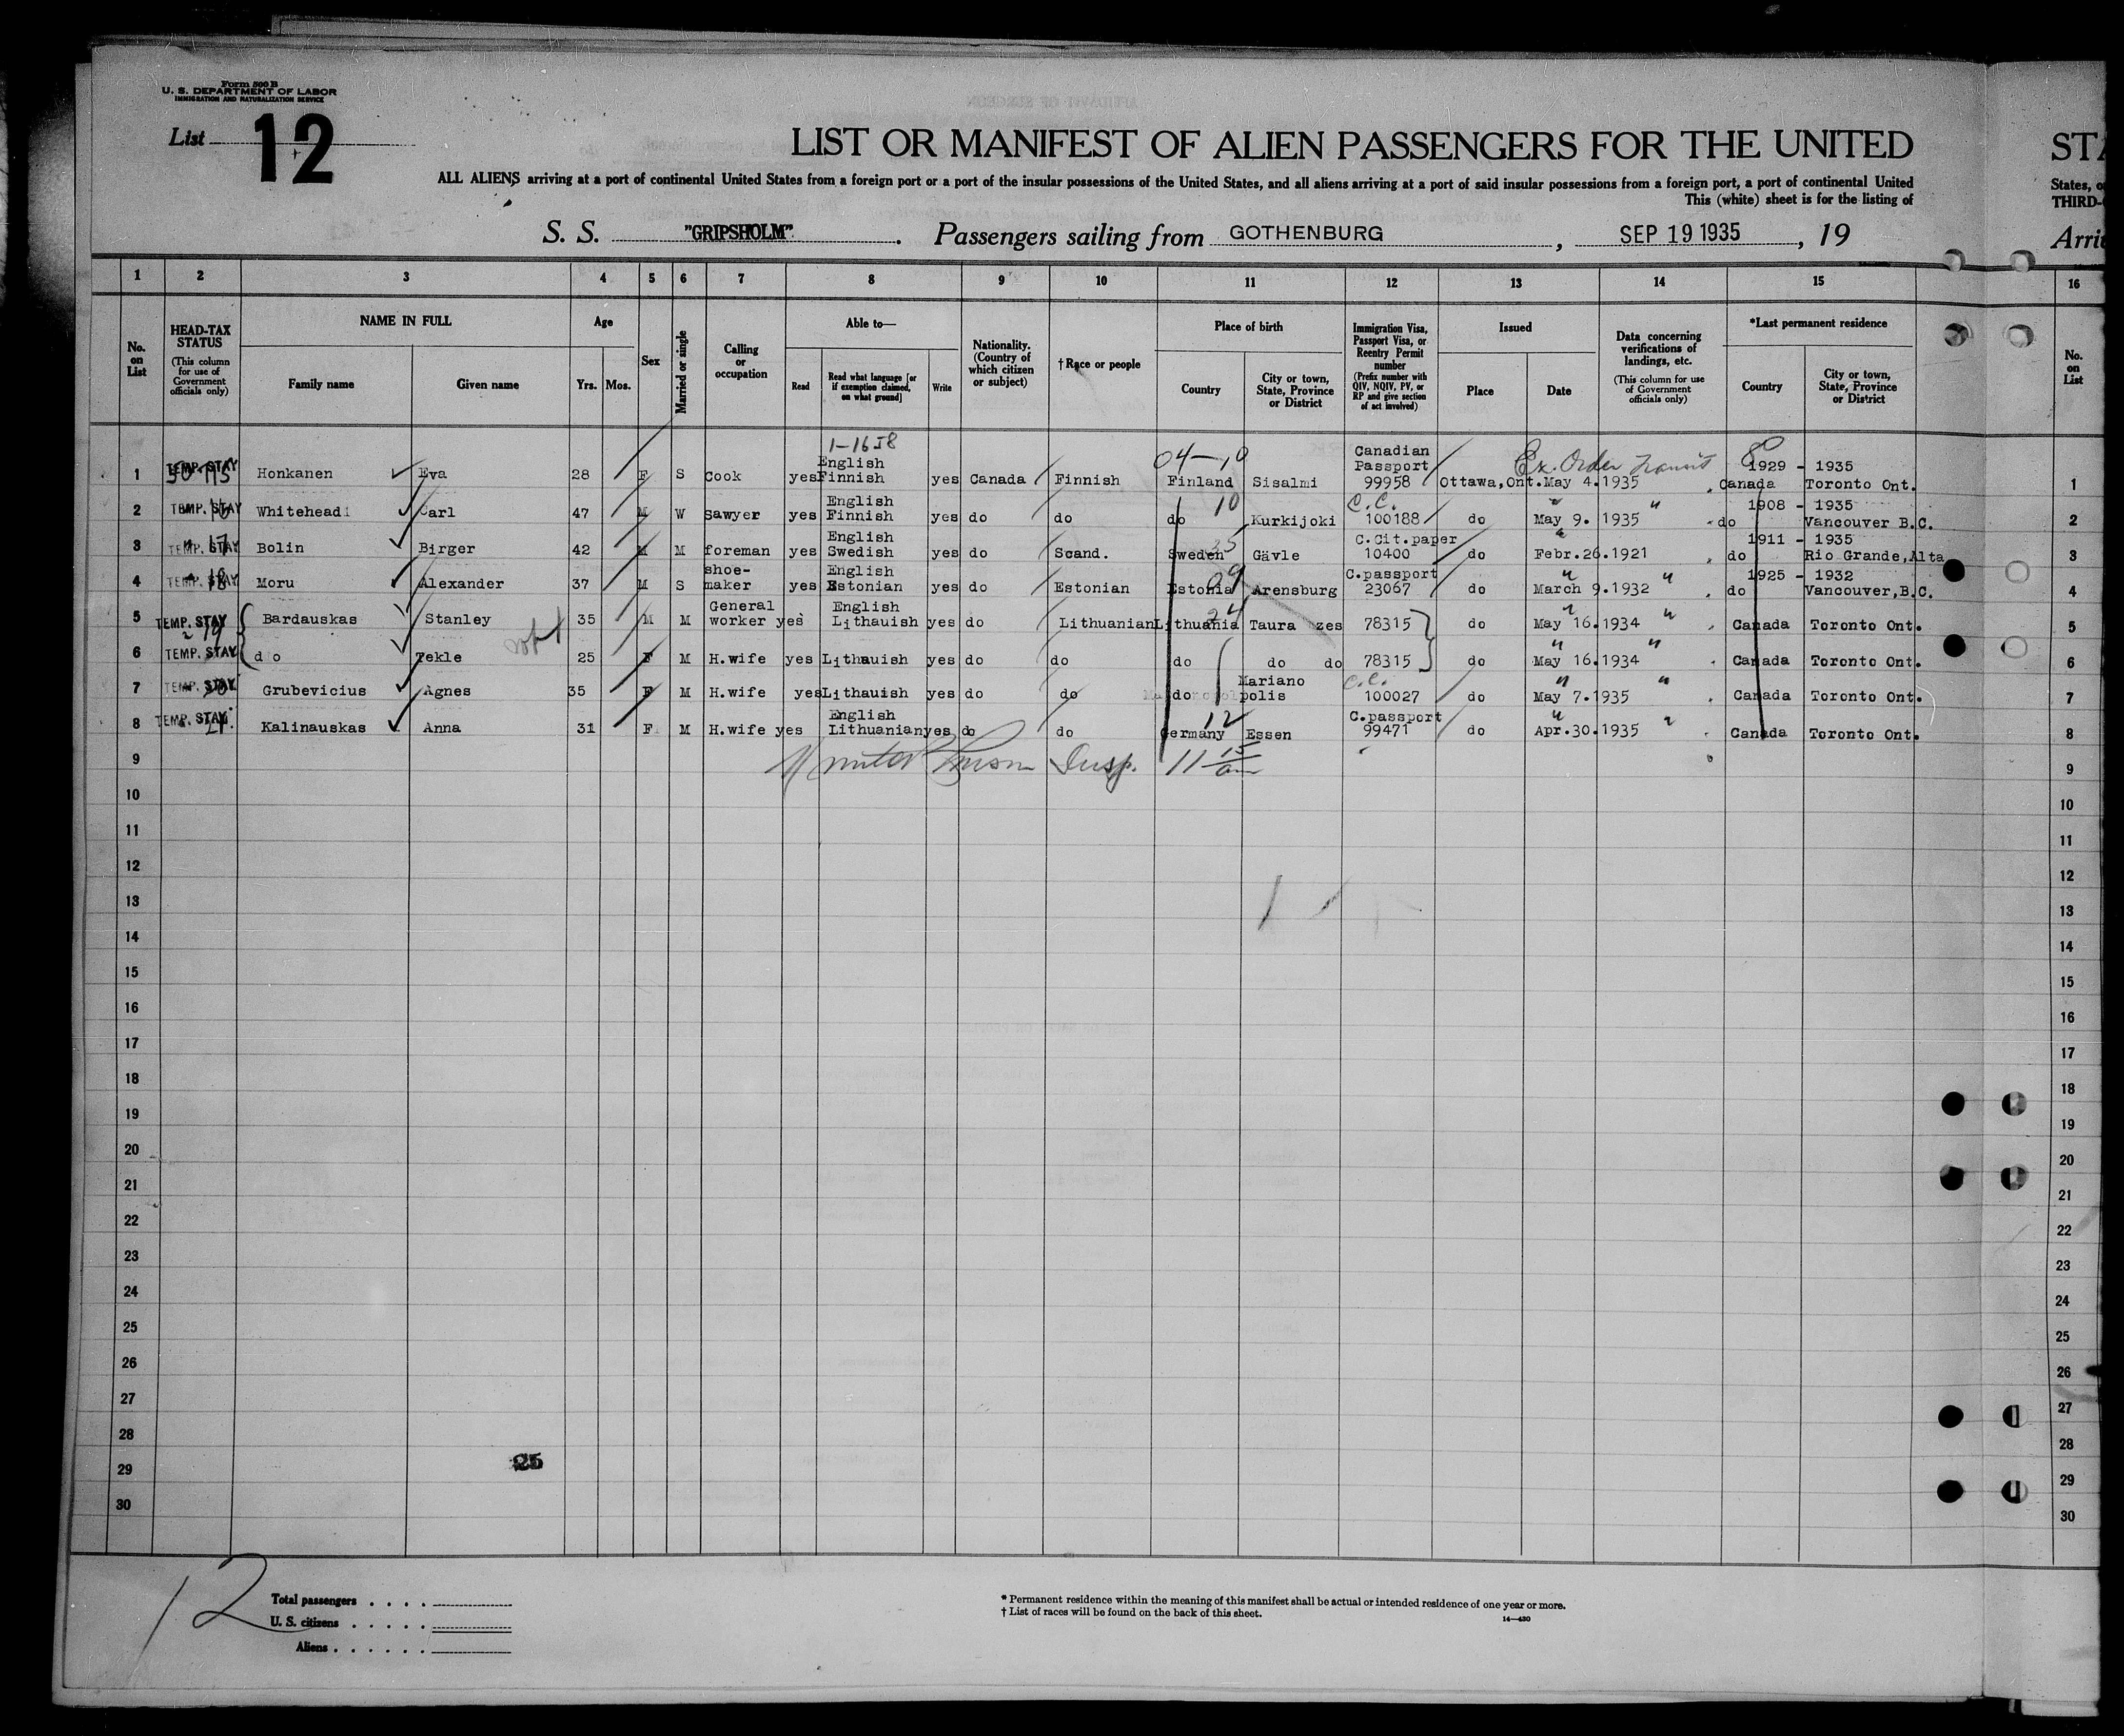 Form 500 B
U. S. DEPARTMENT OF LABOR
IMMIGRATION AND NATURALIZATION SERVICE
List 12
LIST OR MANIFEST OF ALIEN PASSENGERS FOR THE UNITED STA
ALL ALIENS arriving at a port of continental United States from a foreign port or a port of the insular possessions of the United States, and all aliens arriving at a port of said insular possessions from a foreign port, a port of continental United States, o
This (white) sheet is for the listing of THIRD-
S. S. "GRIPSHOLM". Passengers sailing from GOTHENBURG, SEP 19 1935, 19 Arri
1 2 3 4 5 6 7 8 9 10 11 12 13 14 15 16
No. on List
HEAD-TAX STATUS (This column for use of Government officials only)
NAME IN FULL Family name Given name
Age Yrs. Mos.
Sex
Married or single
Calling or occupation
Able to— Read Read what language [or if exemption claimed, on what ground] Write
Nationality. (Country of which citizen or subject)
† Race or people
Place of birth Country City or town, State, Province or District
Immigration Visa, Passport Visa, or Reentry Permit number (Prefix number with QIV, NQIV, PV, or RP and give section of act involved)
Issued Place Date
Data concerning verifications of landings, etc. (This column for use of Government officials only)
*Last permanent residence Country City or town, State, Province or District
No. on List
1-16 58 04-10 Canadian
English Passport Ex. Order Transit 1929 - 1935
1 TEMP. STAY Honkanen Eva 28 F S Cook yes Finnish yes Canada Finnish Finland Sisalmi 99958 Ottawa, Ont. May 4. 1935 Canada Toronto Ont. 1
English 10 C.C. " " 1908 - 1935
2 TEMP. STAY Whitehead Carl 47 M W Sawyer yes Finnish yes do do do Kurkijoki 100188 do May 9. 1935 do Vancouver B.C. 2
English C.Cit.paper 1911 - 1935
3 TEMP. STAY Bolin Birger 42 M M foreman yes Swedish yes do Scand. Sweden Gävle 10400 do Febr.26.1921 do Rio Grande,Alta 3
shoe- English 09 C.passport " " 1925 - 1932
4 TEMP. STAY Moru Alexander 37 M S maker yes Estonian yes do Estonian Estonia Arensburg 23067 do March 9.1932 do Vancouver,B.C. 4
General English 24 " "
5 TEMP. STAY Bardauskas Stanley 35 M M worker yes Lithauish yes do Lithuanian Lithuania Taura zes 78315 do May 16.1934 Canada Toronto Ont. 5
" "
6 TEMP. STAY do Tekle 25 F M H.wife yes Lithauish yes do do do do do 78315 do May 16.1934 Canada Toronto Ont. 6
Mariano C.C. " "
7 TEMP. STAY Grubevicius Agnes 35 F M H.wife yes Lithauish yes do do do polis 100027 do May 7.1935 Canada Toronto Ont. 7
English 12 C.passport " "
8 TEMP. STAY Kalinauskas Anna 31 F M H.wife yes Lithuanian yes do do Germany Essen 99471 do Apr.30.1935 Canada Toronto Ont. 8
9 Insp. 11 15 am 9
10 10
11 11
12 12
13 13
14 14
15 15
16 16
17 17
18 18
19 19
20 20
21 21
22 22
23 23
24 24
25 25
26 26
27 27
28 28
25
29 29
30 30
12
Total passengers . . . .
U. S. citizens . . . . .
Aliens . . . . . .
* Permanent residence within the meaning of this manifest shall be actual or intended residence of one year or more.
† List of races will be found on the back of this sheet.
14—430